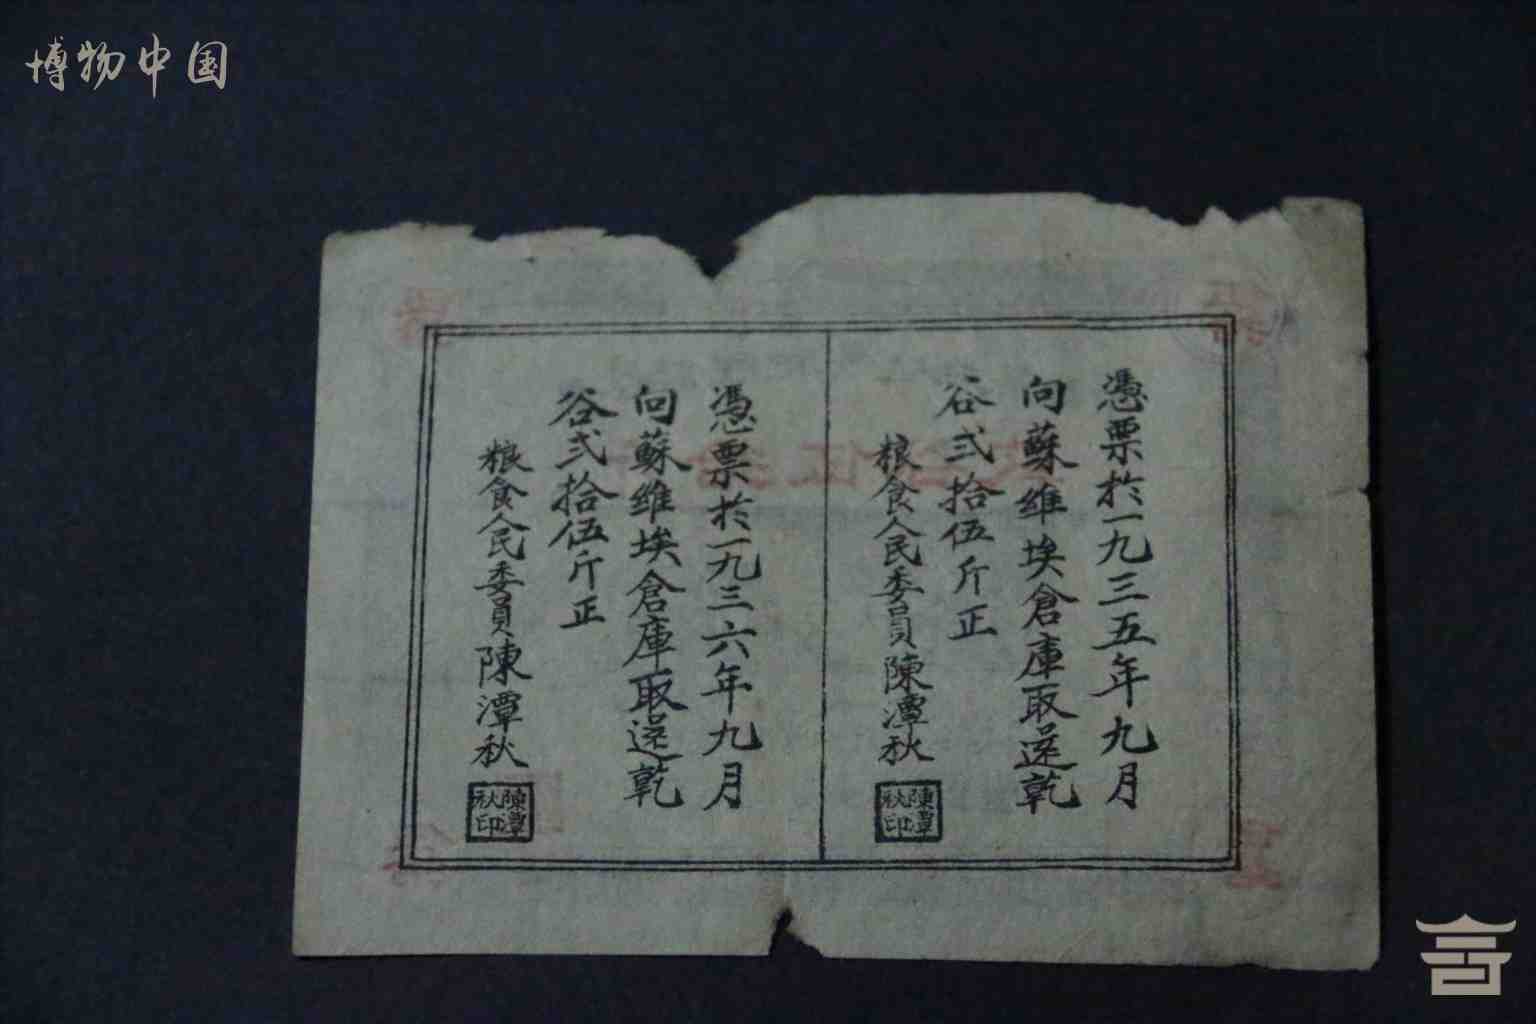 博物中国
憑票於一九三五年九月
向蘇維埃倉庫取還乾
谷弍拾伍斤正
粮食人民委員陳潭秋
陳潭
秋印
憑票於一九三六年九月
向蘇維埃倉庫取還乾
谷弍拾伍斤正
粮食人民委員陳潭秋
陳潭
秋印